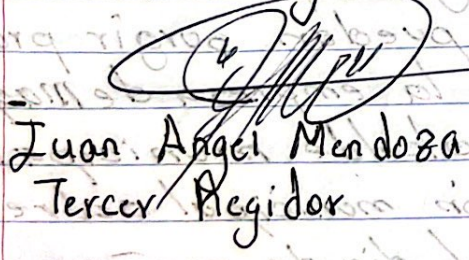 Juan Angel Mendoza
Tercer Regidor